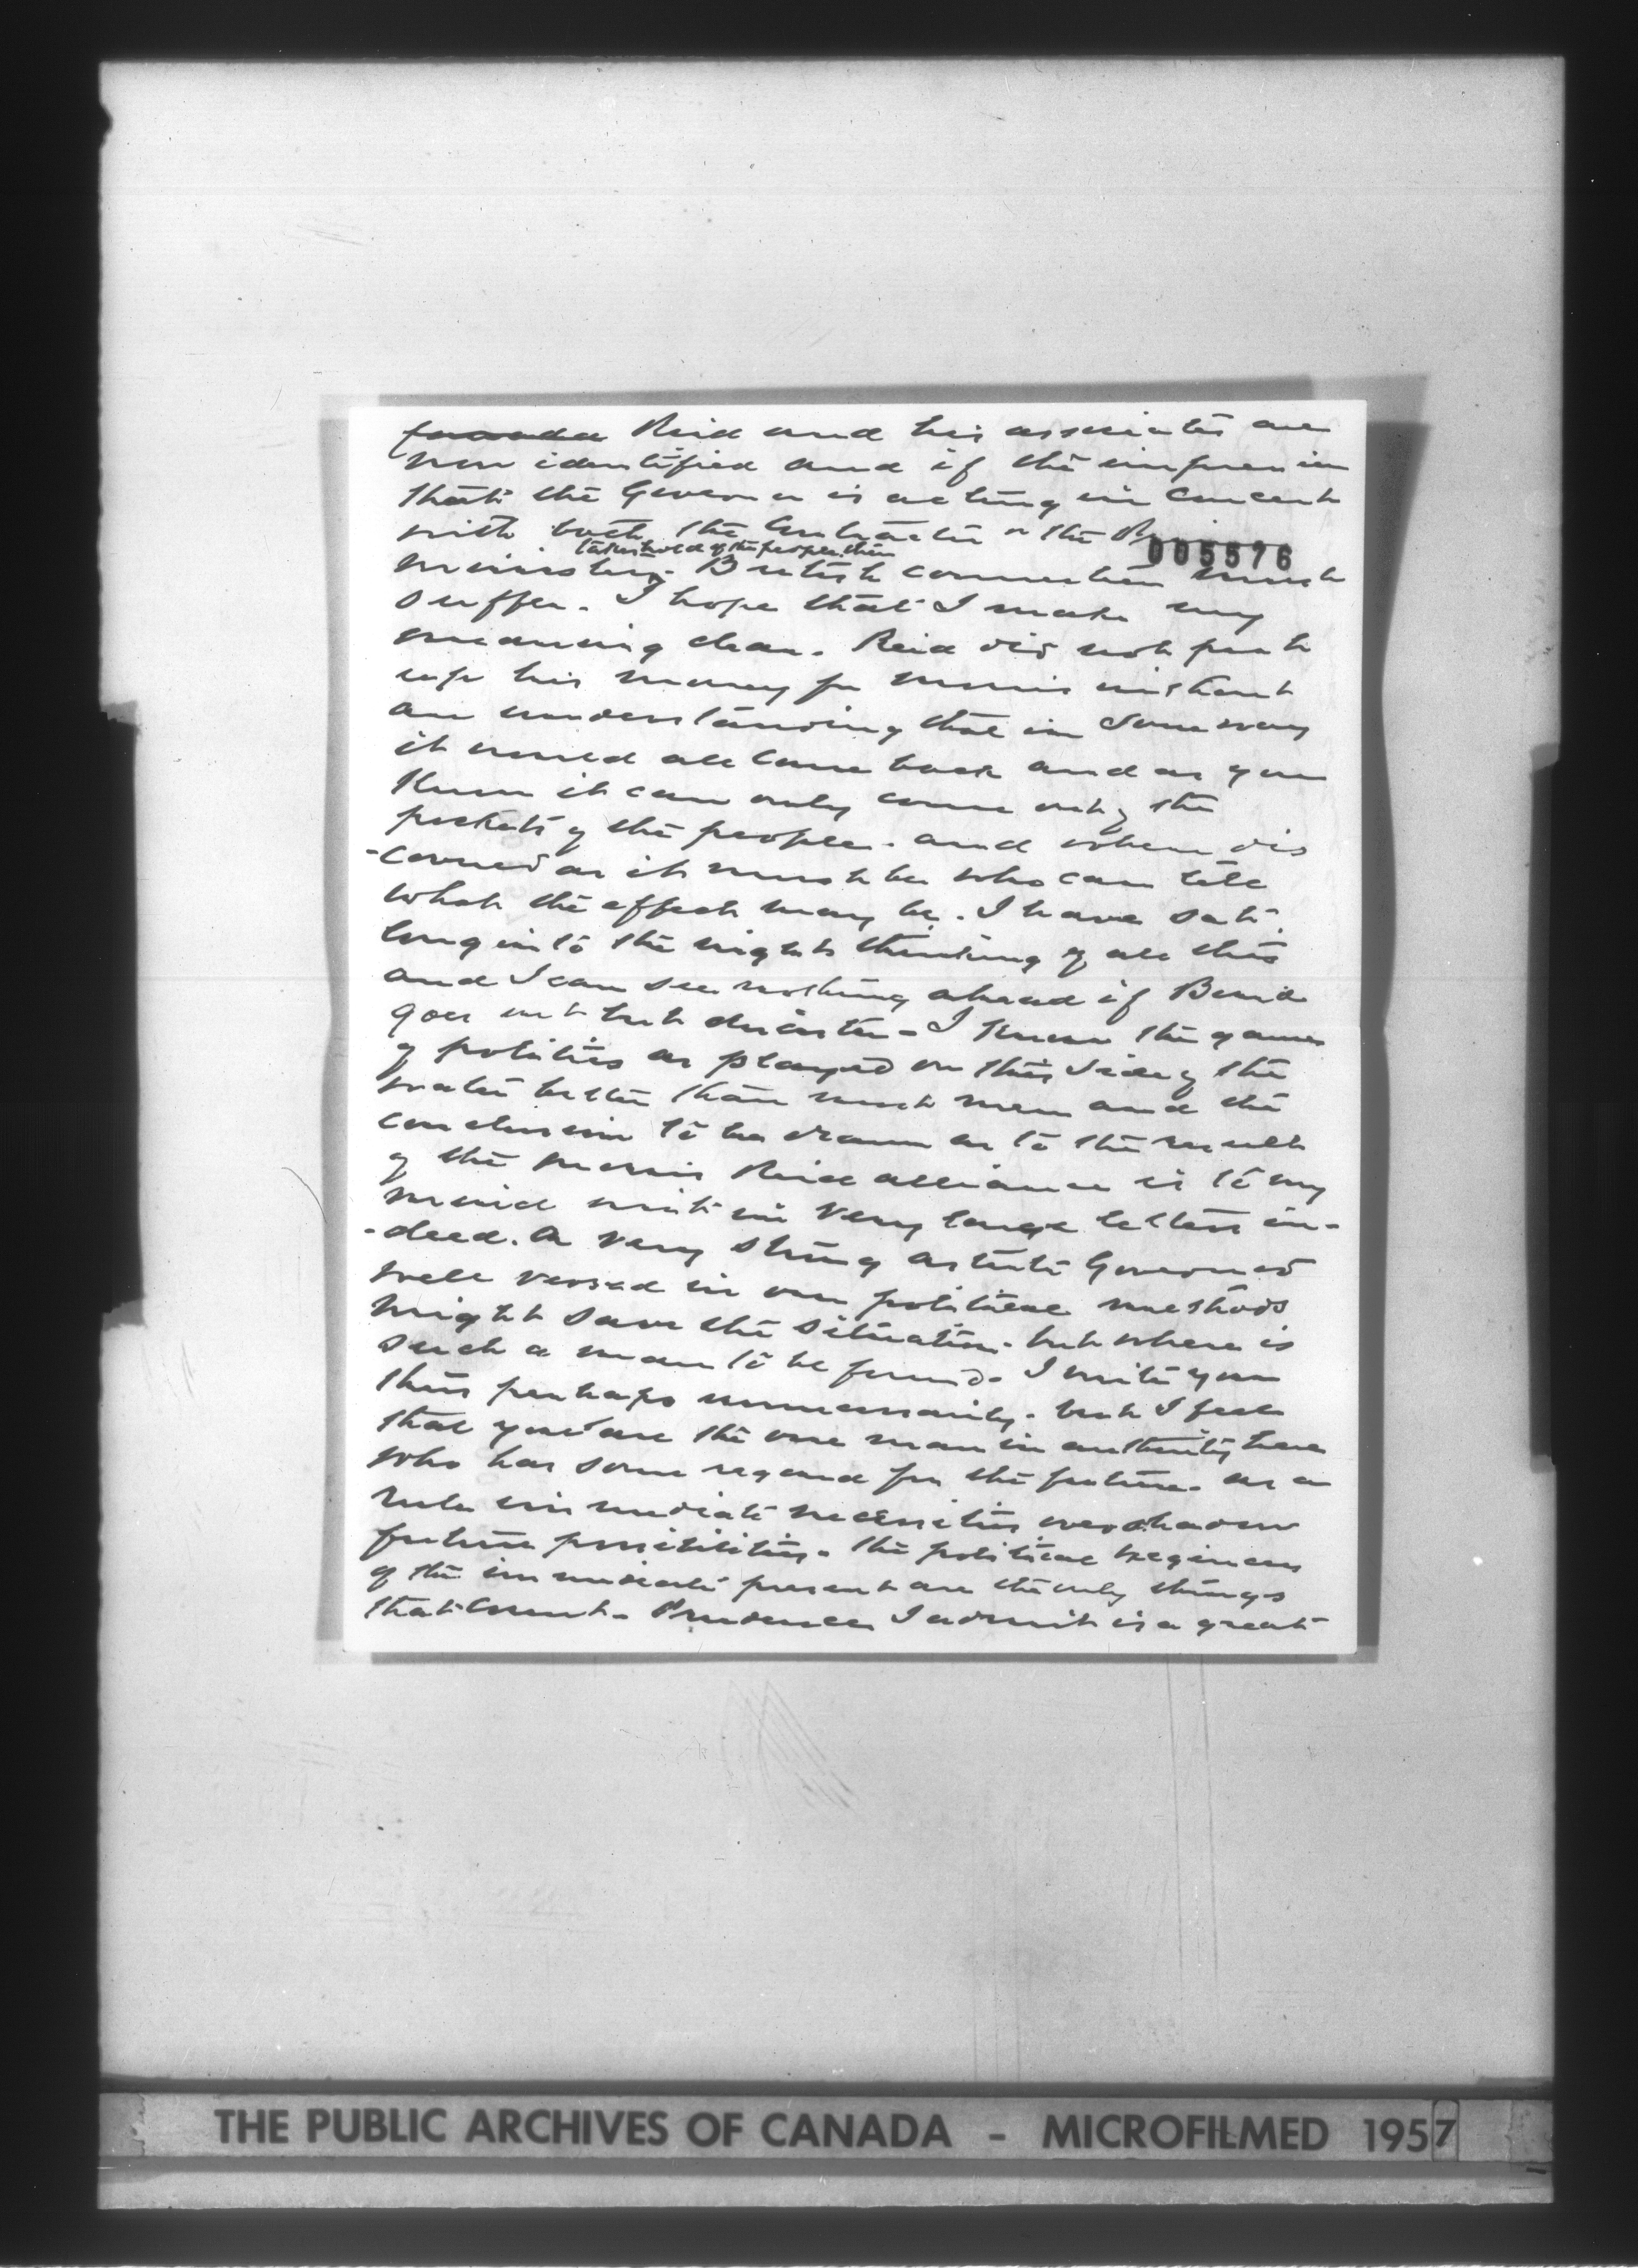 Canada Reid and his associates are
now identified and if the impression
that the Governor is acting in concert
with both the Contractor or the
005576
takes hold of the people then
ministry. British connection must
suffer. I hope that I make my
meaning clear. Reid did not put
up his money for Morris without
an understanding that in some way
it would all come back and as you
know it can only come out of the
pockets of the people. and when dis
-covered as it must be who can tell
what the effect may be. I have sat
long into the night thinking of all this
and I can see nothing ahead if Bond
goes out but disaster - I know the game
of politics as played on this side of the
water better than most men and the
conclusion to be drawn as to the result
of the Morris Reid alliance is to my
mind writ in very large letters in-
-deed. A very strong astute Governor
well versed in our political methods
might save the situation. but where is
such a man to be found. I write you
this perhaps unnecessarily. but I feel
that you are the one man in authority here
who has some regard for the future. as a
rule immediate necessities overshadow
future possibilities. The political exigencies
of the immediate present are the only things
that count. Prudence I admit is a great
THE PUBLIC ARCHIVES OF CANADA - MICROFILMED 1957